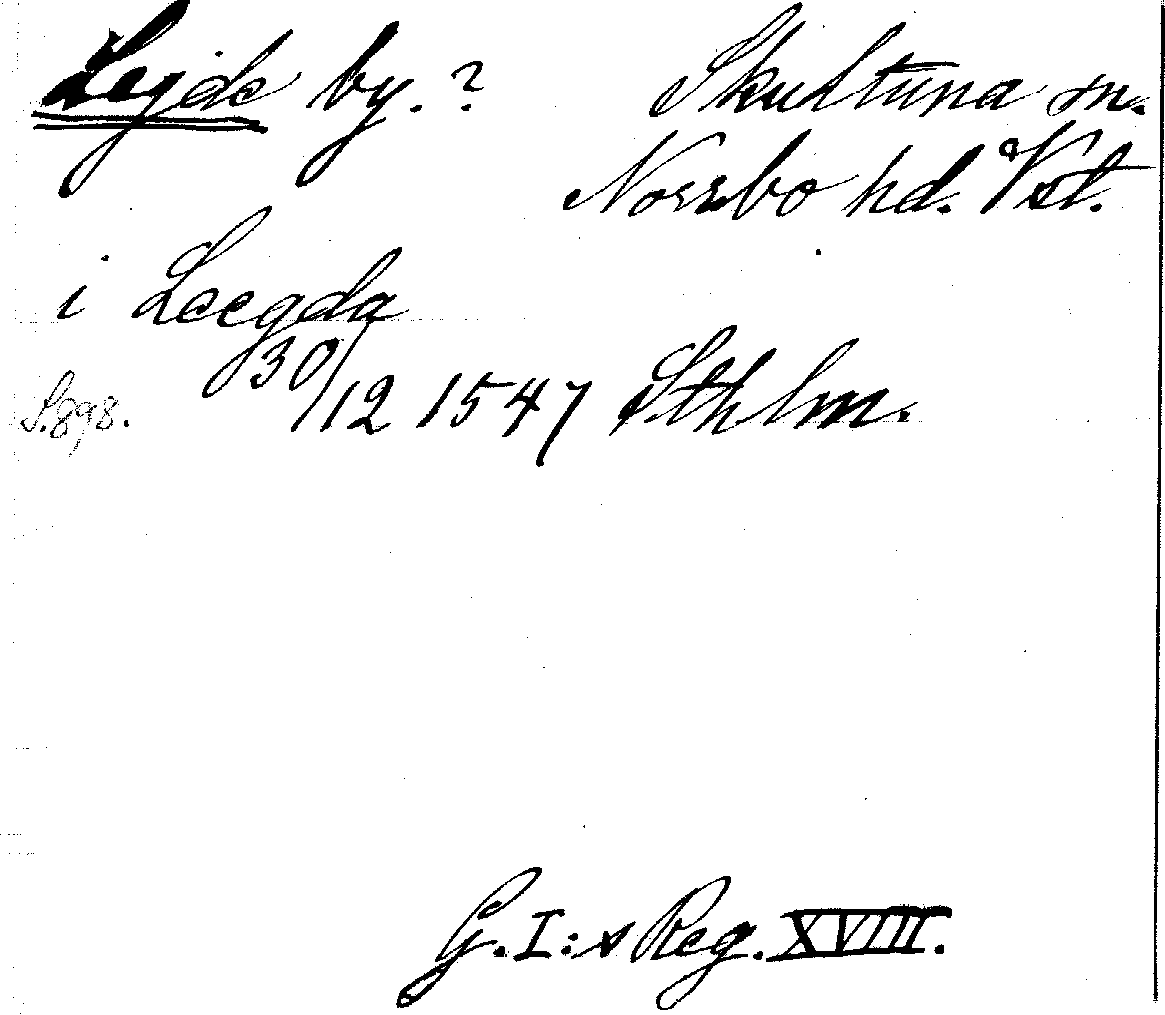 Legde by. ? Skultuna sn.
Norrbo hd. Vstl.
i Leegda
30/12 1547 Sthlm.
S. 898.
G. I:s Reg. XVIII.